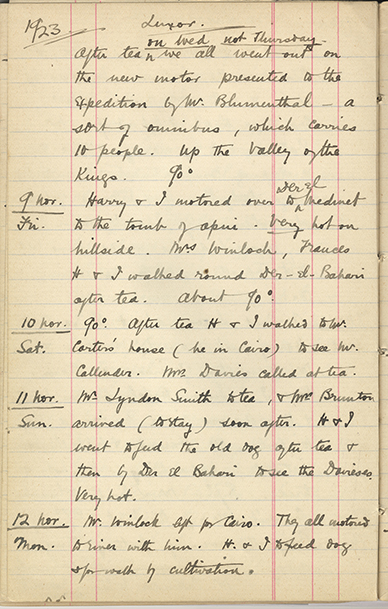 1923 Luxor.
on Wed not Thursday
After tea we all went out on
the new motor presented to the
Expedition by Mr. Blumenthal – a
sort of omnibus, which carries
10 people. Up the Valley of the
Kings. 90°
9 Nov. Harry & I motored over to Der el Medinet
Fri. to the tomb of Apuі. Very hot on
hillside. Mrs Winlock, Frances
H & I walked round Der-el-Bahari
after tea. About 90°.
10 Nov. 90°. After tea H & I walked to Mr.
Sat. Carter's house (he in Cairo) to see Mr.
Callender. Mrs. Davies called at tea.
11 Nov. Mr. Lyndon Smith to tea, & Mrs. Brunton
Sun. arrived (to stay) soon after. H & I
went to feed the old dog after tea &
then by Der el Bahari to see the Davieses.
Very hot.
12 Nov. Mr. Winlock left for Cairo. They all motored
Mon. to river with him. H. & I to feed dog
& for walk by cultivation.